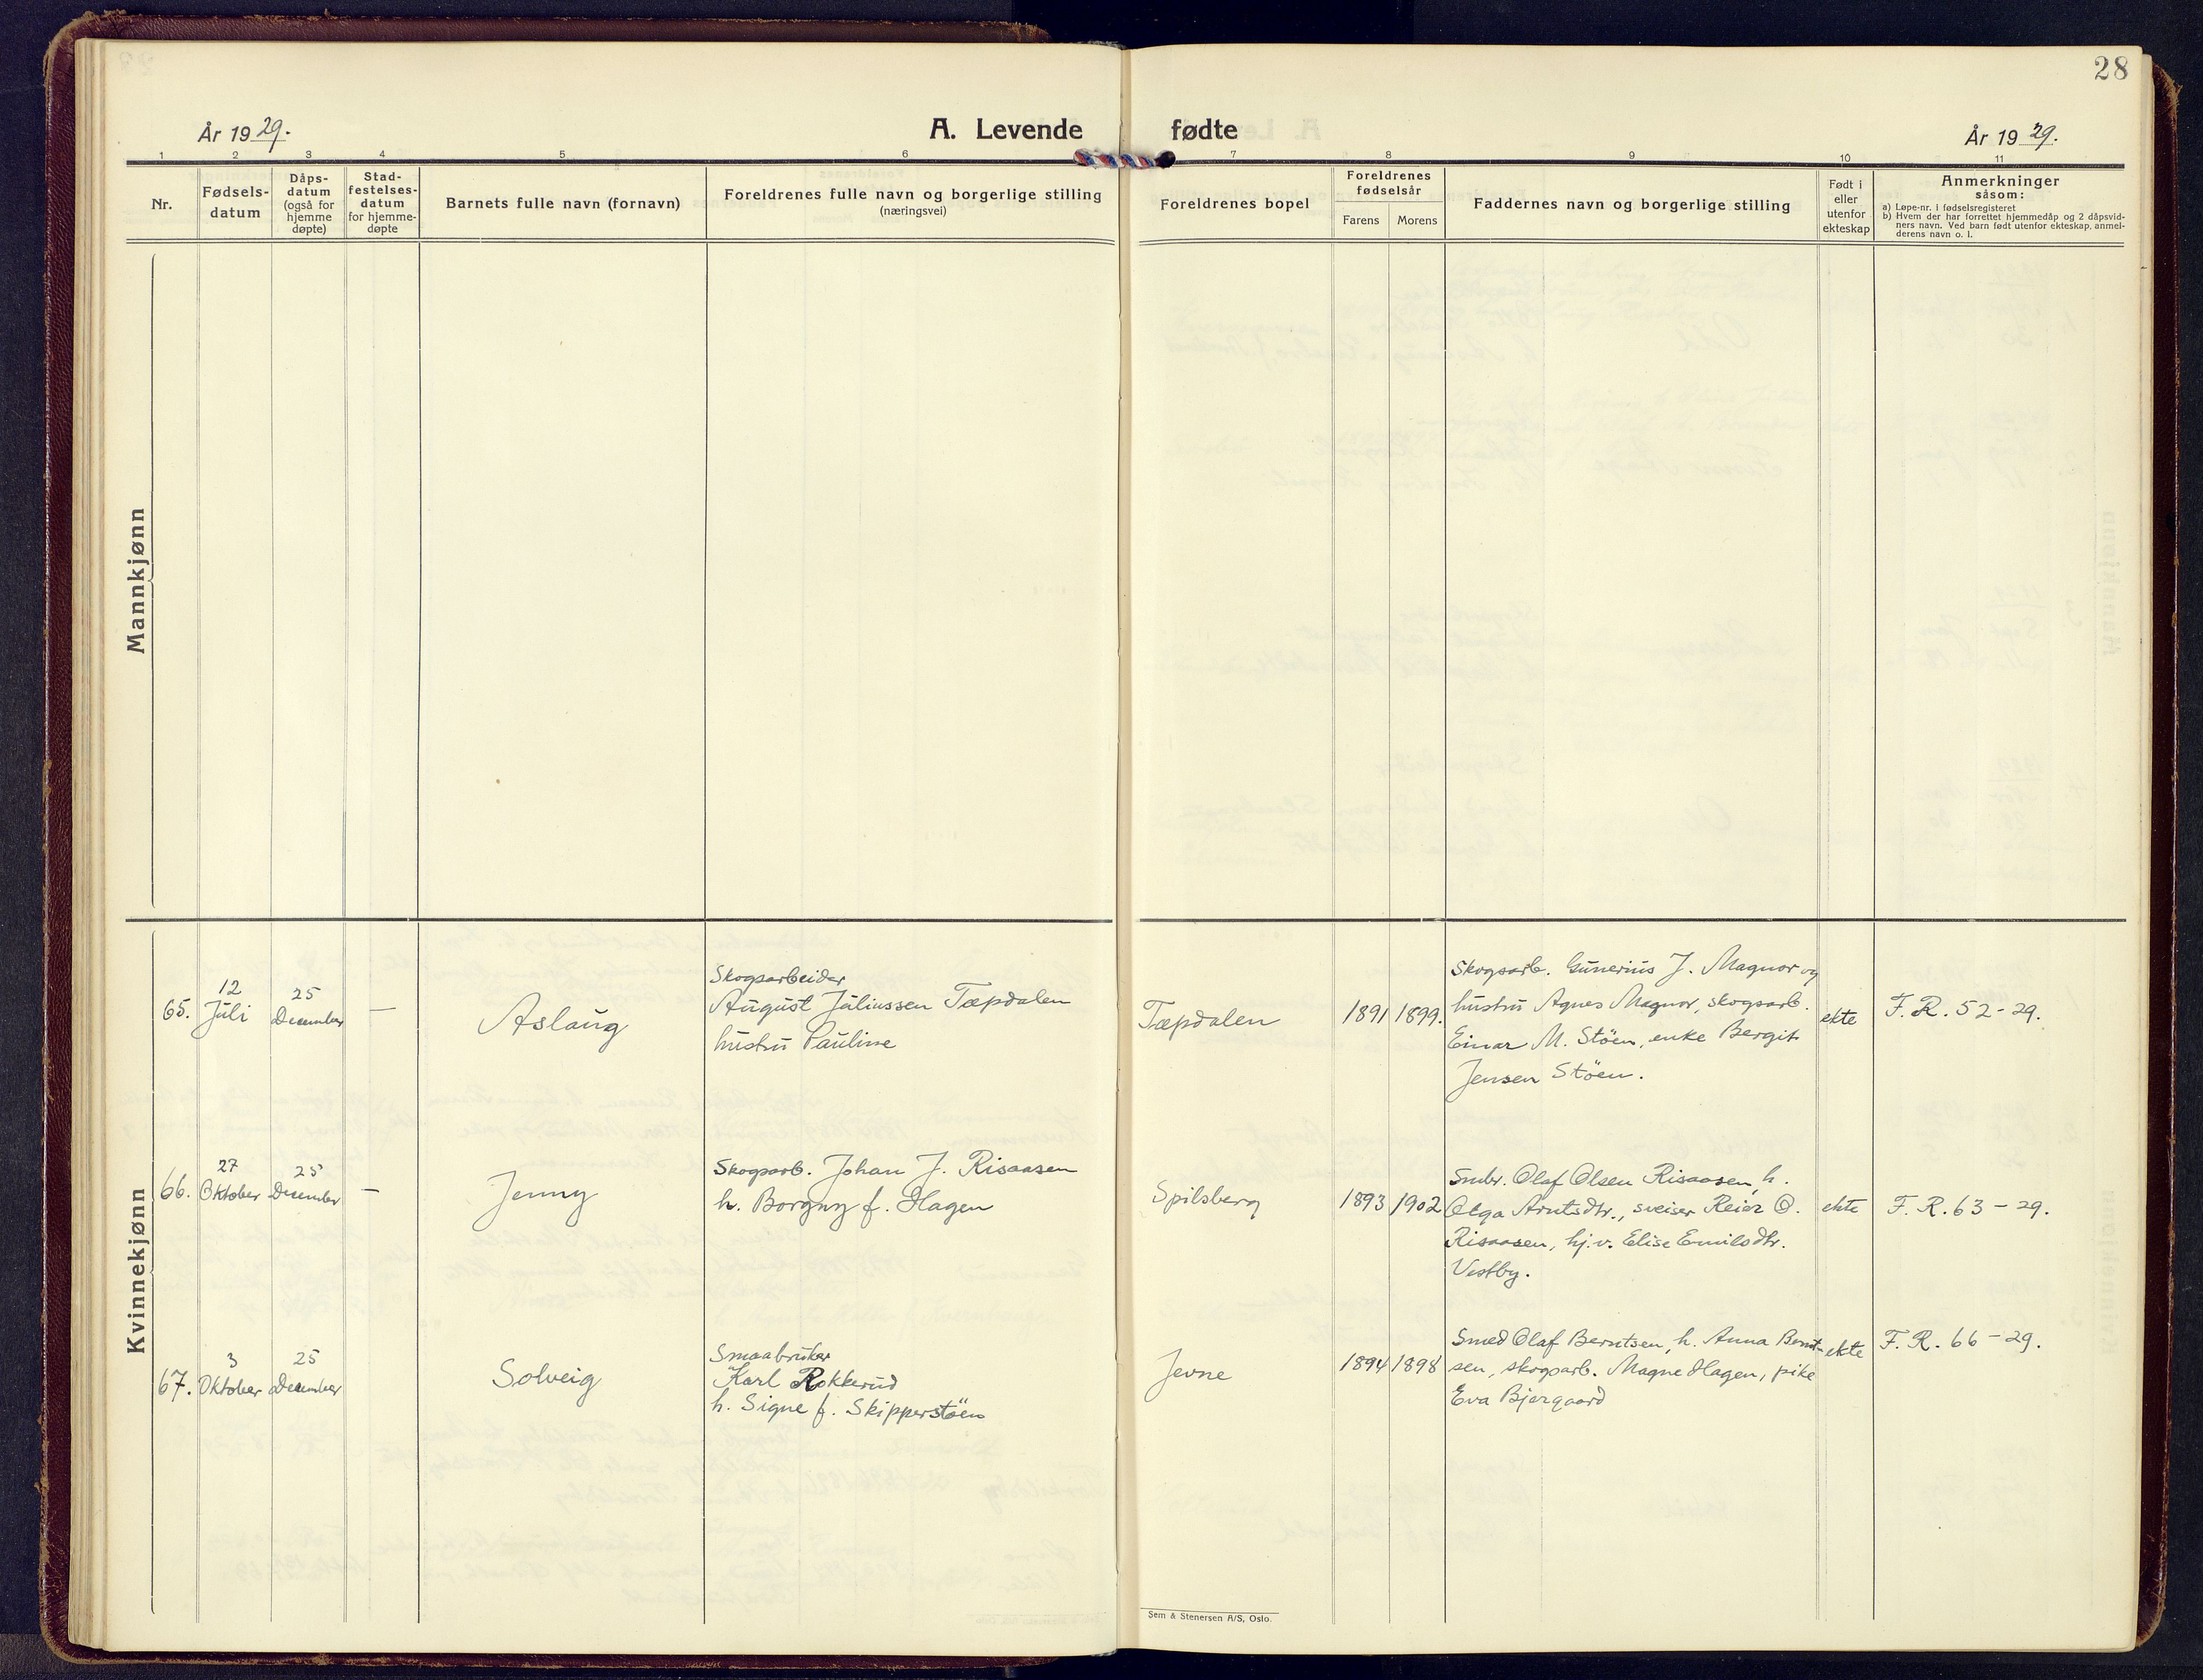 28
År 1929.
A. Levende fødte
År 1929.
1 2 3 4 5 6 7 8 9 10 11
Nr.
Fødsels-
datum
Dåps-
datum
(også for
hjemme
døpte)
Stad-
festelses-
datum
for hjemme-
døpte
Barnets fulle navn (fornavn)
Foreldrenes fulle navn og borgerlige stilling
(næringsvei)
Foreldrenes bopel
Foreldrenes
fødselsår
Farens
Morens
Faddernes navn og borgerlige stilling
Født i
eller
utenfor
ekteskap
Anmerkninger
såsom:
a) Løpe-nr. i fødselsregisteret
b) Hvem der har forrettet hjemmedåp og 2 dåpsvid-
ners navn. Ved barn født utenfor ekteskap, anmel-
derens navn o. l.
Mannkjønn
Kvinnekjønn
65.
12
Juli
25
December
—
Aslaug
Skogsarbeider
August Juliussen Tæpdalen
hustru Pauline
Tæpdalen
1891
1899.
Skogsarb. Gunerius J. Magnor og
hustru Agnes Magnor, skogsarb.
Einar M. Støen, enke Bergit
Jensen Støen.
ekte
F. R. 52-29.
66.
27
Oktober
25
December
—
Jenny
Skogsarb. Johan J. Risaasen
h. Borgny f. Hagen
Spilsberg
1893
1902
Smbr. Olaf Olsen Risaasen, h.
Olga Arntsdtr., sveiser Reier O.
Risaasen, hj.v. Elise Emilsdtr.
Vestby.
ekte
F. R. 63-29.
67.
3
Oktober
25
December
Solveig
Smaabruker
Karl Rokkerud
h. Signe f. Skipperstøen
Jevne
1894
1898
Smed Olaf Berntsen, h. Anna Bernt-
sen, skogsarb. Magne Hagen, pike
Eva Bjergaard
ekte
F. R. 66-29.
Sem & Stenersen A/S, Oslo.